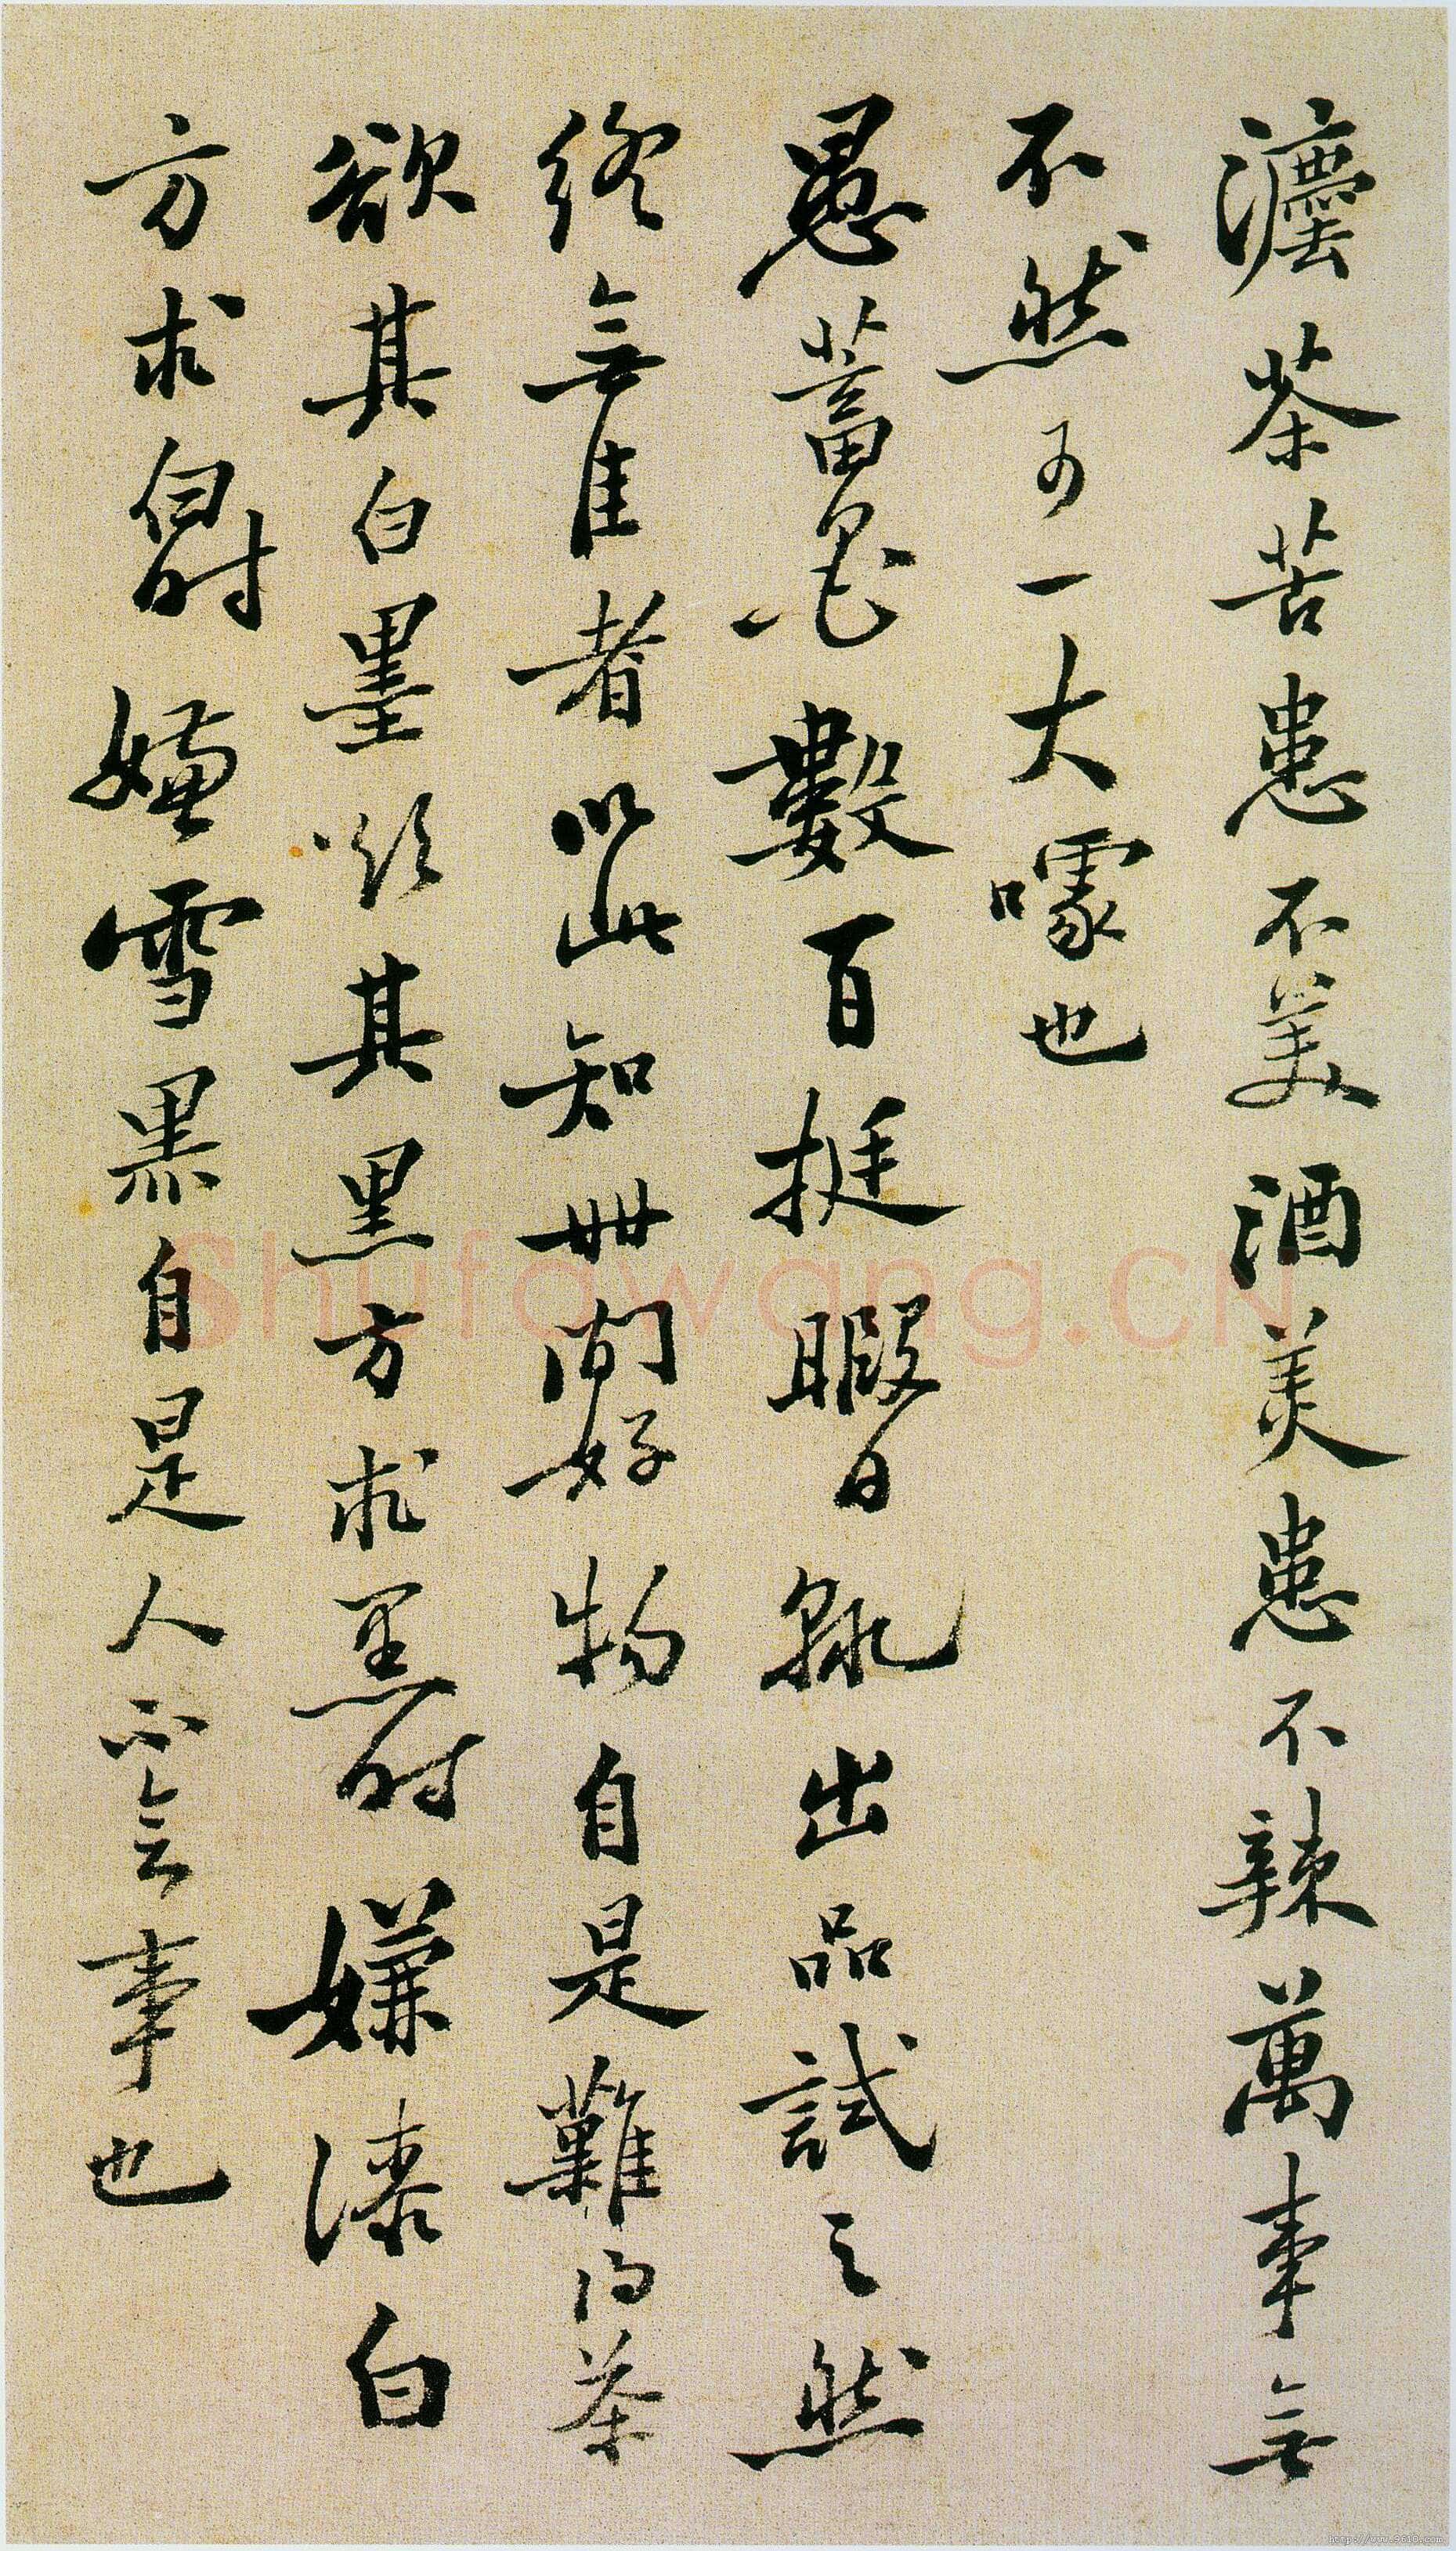 灋茶苦患不美酒美患不辣萬事無
不然可一大噱也
愚蓄墨數百挺暇日輒出品試之然
終無佳者以此知世間好物自是難得茶
欲其白墨欲其黑方求黑時嫌漆白
方求白時嫌雪黑自是人不會事也
Shufawang.CN
http://www.9610.com